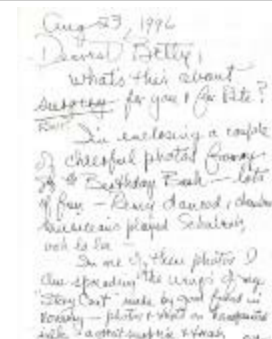 Aug 23, 1996
Dearest Betty,
What's this about
surgery for you & for Pete?
I'm enclosing a couple
of cheerful photos from
Birthday Bash — lots
of fun — danced, chamber
musicians played Schubert,
ooh la la —
In one of these photos I
am spreading the wings of my
"Story Coat" made by good friend in
— photos & text on
silk — a great surprise &